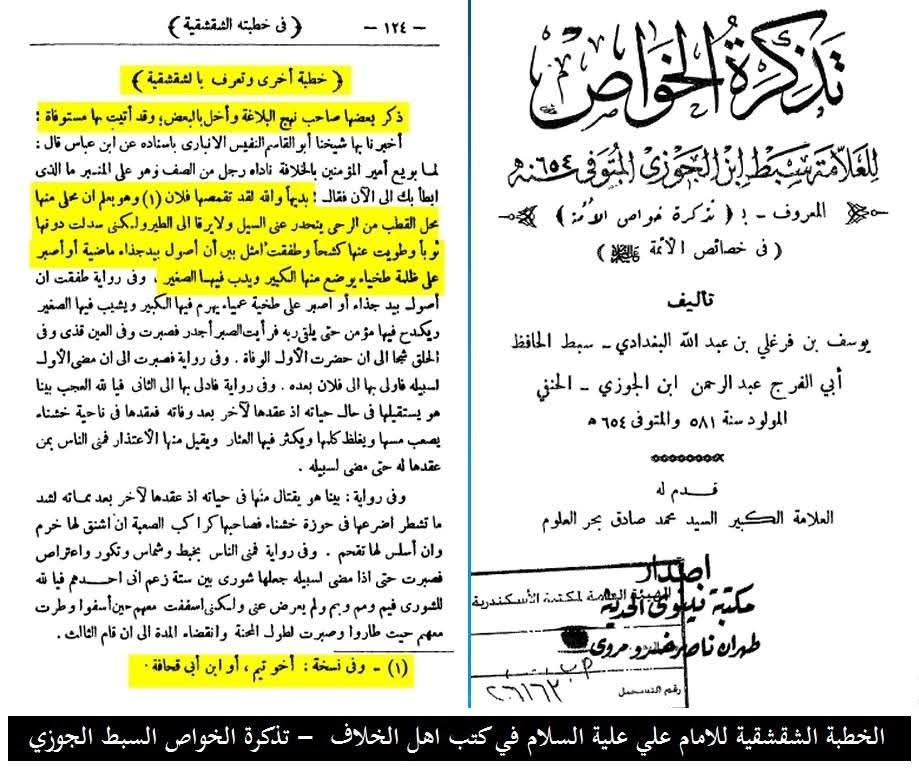 تذكرة الخواص
للعلامة سبط ابن الجوزي المتوفى سنة ٦٥٤ه
المعروف – ب ( تذكرة خواص الأئمة )
( في خصائص الأئمة )
تأليف
يوسف بن فرغلي بن عبد الله البغدادي – سبط الحافظ
أبي الفرج عبد الرحمن ابن الجوزي – الحنفي
المولود سنة ٥٨١ والمتوفى ٦٥٤ ه
قدم له
العلامة الكبير السيد محمد صادق بحر العلوم
اصدار
مكتبة نينوى الحديثة
طهران ناصر خسرو مروى
الهيئة العامة لمكتبة الأسكندرية
رقم التسجيل
– ١٢٤ – ( في خطبته الشقشقية )
( خطبة أخرى وتعرف بالشقشقية )
ذكر بعضها صاحب نهج البلاغة وأخل بالبعض، وقد أتيت بها مستوفاة :
أخبرنا بها شيخنا أبو القاسم النفيس الانباري باسناده عن ابن عباس قال :
لما بويع أمير المؤمنين بالخلافة ناداه رجل من الصف وهو على المنبر ما الذي
ابطأ بك الى الآن فقال : بديهاً والله لقد تقمصها فلان (١) وهو يعلم ان محلى منها
محل القطب من الرحى ينحدر عنى السيل ولا يرقا الى الطير ولكنى سدلت دونها
ثوباً وطويت عنها كشحاً وطفقت امثل بين أن أصول بيد جذاء ماضية أو أصبر
على ظلمة طخياء يوضع منها الكبير ويدب فيها الصغير . وفى رواية طفقت ان
أصول بيد جذاء أو اصبر على طخية عمياء يهرم فيها الكبير ويشيب فيها الصغير
ويكدح فيها مؤمن حتى يلقى ربه فرأيت الصبر أجدر فصبرت وفى العين قذى وفى
الحلق شجا الى ان حضرت الأول الوفاة . وفى رواية فصبرت الى ان مضى الأول
لسبيله فاولى بها الى فلان بعده . وفى رواية فادلى بها الى الثانى فيا لله العجب بينا
هو يستقيلها في حال حياته اذ عقدها لآخر بعد وفاته فعقدها في ناحية خشناء
يصعب مسها ويغلظ كلمها ويكثر فيها العثار ويقيل منها الاعتذار فمنى الناس بمن
عقدها له حتى مضى لسبيله .
وفى رواية : بينا هو يقتال منها في حياته اذ عقدها لآخر بعد مماته لشد
ما تشطر اضرعها فى حوزة خشناء فصاحبها كراكب الصعبة ان اشنق لها خرم
وان أسلس لها تقحم . وفى رواية فمنى الناس بخبط وشماس وتكور واعتراض
فصبرت حتى اذا مضى لسبيله جعلها شورى بين ستة زعم انى احدهم فيا لله
للشورى فيم ومم وبم ولم يعرض عنى ولكنى اسففت معهم حين أسفوا وطرت
معهم حيث طاروا وصبرت لطول المحنة وانقضاء المدة الى ان قام الثالث .
(١) – وفى نسخة : أخو تيم ، أو ابن أبي قحافة .
الخطبة الشقشقية للامام علي علية السلام في كتب اهل الخلاف – تذكرة الخواص السبط الجوزي